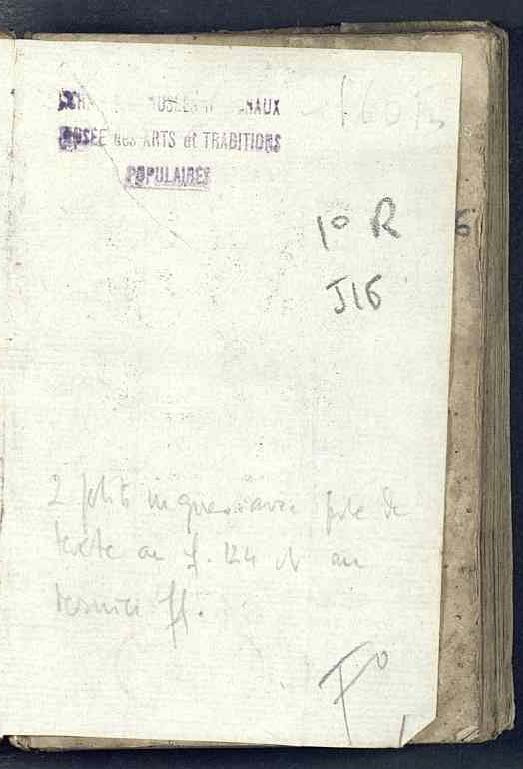 MUSÉE des ARTS et TRADITIONS
POPULAIRES
1º R
J16
2 petits manques avec perte de
texte au f. 124 et au
dernier ff.
Fº